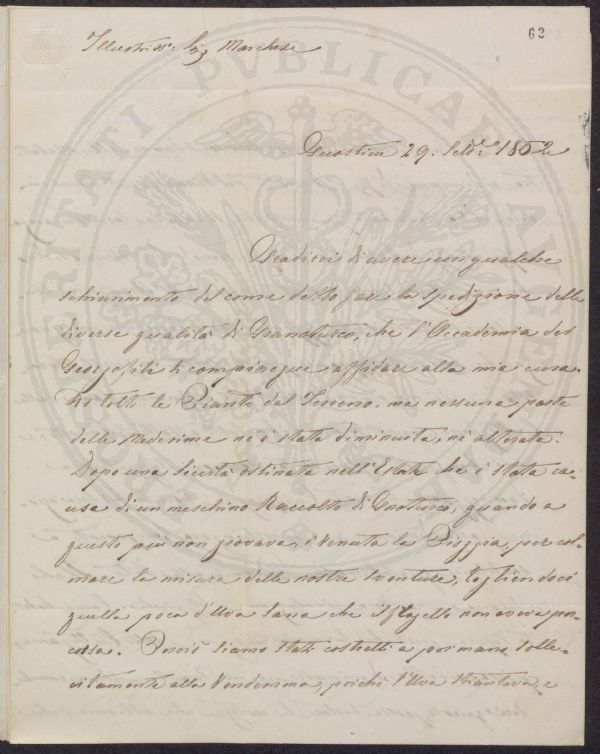 62
Illustriss: Sig Marchese
29. Sett: 1852
di avere un qualche
schiarimento del come debbo fare la spedizione delle
diverse qualità di Granoturco, che l'Accademia dei
Georgofili si compiacque affidare alla mia cura.
Ho tolto le Piante dal Terreno, ma nessuna parte
delle medesime nè è stata diminuita, nè alterata.
Dopo una Siccità ostinata nell'Estate che è stata ca-
usa di un meschino Raccolto di Granturco, quando a
questo più non giovava, è venuta la Pioggia per col-
mare la misura delle nostre sventure, togliendoci
quella poca d'Uva sana che il flagello non aveva per-
cossa. Perciò siamo stati costretti a por mano solle-
citamente alla Vendemmia, poichè l'Uva stiantava e
PVBLICAE